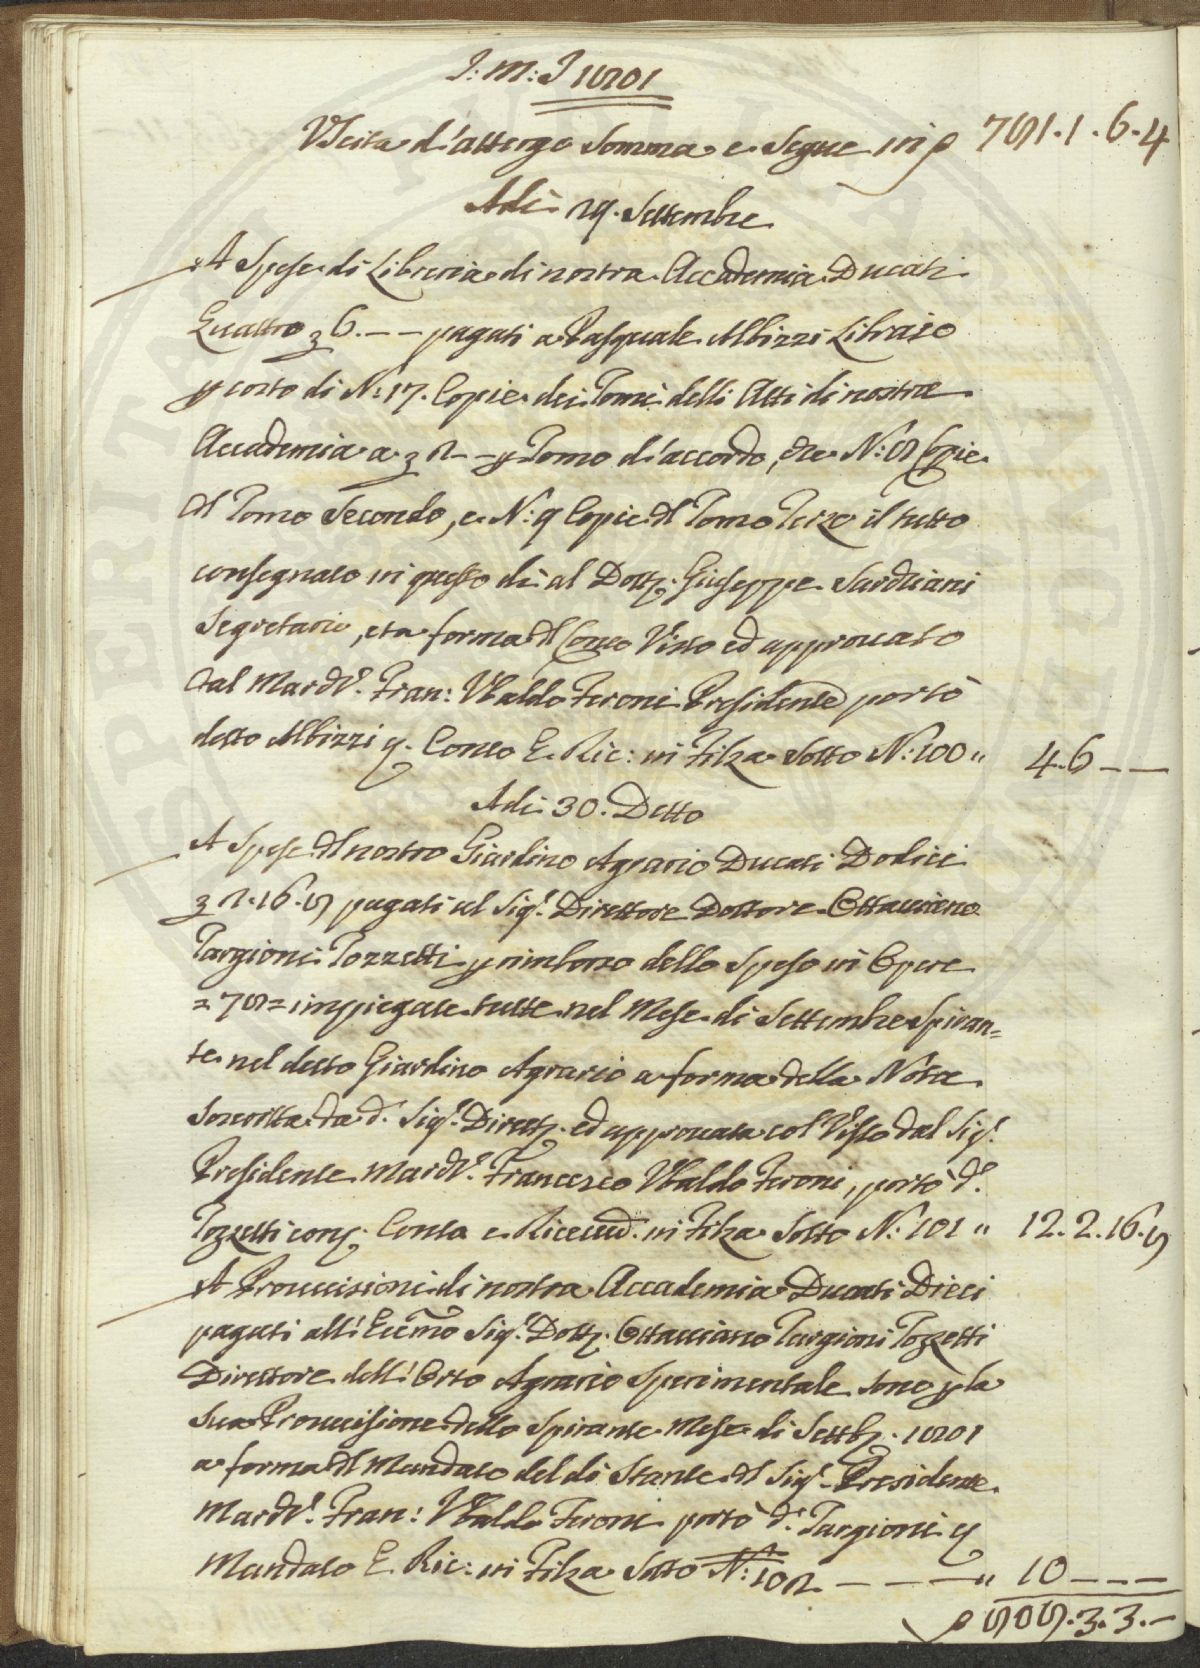 J: M: J 1801
Uscita d'attergo Somma e Segue in ₽ 781.1.6.4
Adì 29. Settembre
A Spese di Libreria di nostra Accademia Ducati
Quattro £ 6. — — pagati a Pasquale Albizzi Libraio
p costo di N: 17. Copie dei Tomi delli Atti di nostra
Accademia a £ 2 — p Tomo d'accordo, che N: 8 Copie
del Tomo Secondo, e N: 9 Copie del Tomo Terzo il tutto
consegnato in questo dì al Dott. Giuseppe Sarchiani
Segretario, et a forma del Conto Visto ed approvato
dal March. Fran: Ubaldo Feroni Presidente portò
detto Albizzi p. Conto E. Ric: in Filza Sotto N: 100 " 4.6 — —
Adì 30. Detto
A Spese del nostro Giardino Agrario Ducati Dodici
£ 2.16.8 pagati al Sig.r Direttore Dottore Ottaviano
Targioni Tozzetti p rimborso dello Speso in Opere
= 78 = impiegate tutte nel Mese di Settembre Spiran=
te nel detto Giardino Agrario a forma della Nota
Soscritta da d.o Sig.r Dirett. ed approvata col Visto dal Sig.r
Presidente March. Francesco Ubaldo Feroni, portò d.o
Tozzetti con p. Conto e Ricevud. in Filza Sotto N: 101 " 12.2.16.8
A Provvisioni di nostra Accademia Ducati Dieci
pagati all'Eccmo Sig.r Dott. Ottaviano Targioni Tozzetti
Direttore dell'Orto Agrario Sperimentale sono p la
Sua Provvisione dello Spirante Mese di Settb. 1801
a forma del Mandato del dì Stante del Sig.r Presidente
March. Fran: Ubaldo Feroni portò d.o Targioni p
Mandato E. Ric: in Filza Sotto N: 102 — — — — " 10 — — —
₽ 808.3.3.—